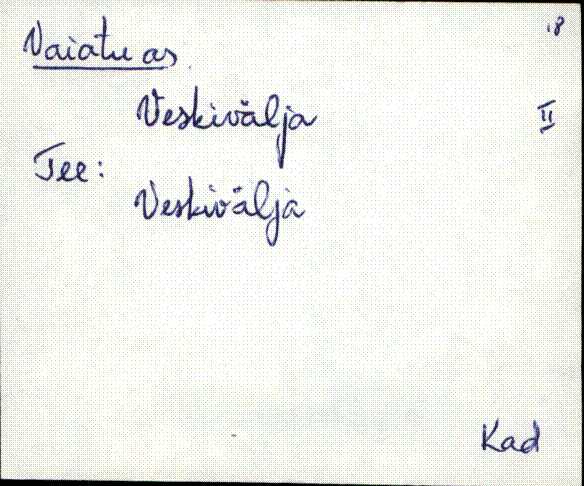 18
Vaiatu as
Veskivälja II
Tee:
Veskivälja
Kad